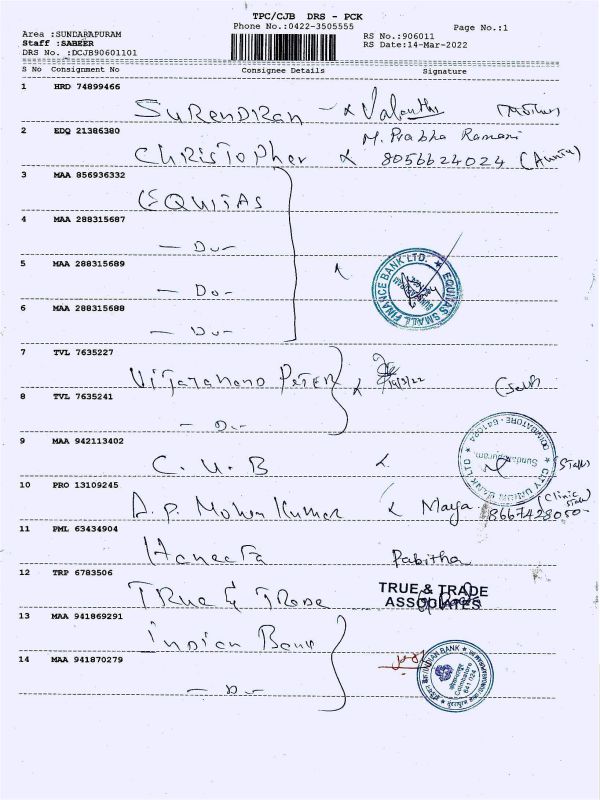 TPC/CJB DRS - PCK
Phone No.:0422-3505555
Page No.:1
Area :SUNDARAPURAM
Staff :SABEER
DRS No. :DCJB90601101
RS No.:906011
RS Date:14-Mar-2022
S No Consignment No Consignee Details Signature
1 HRD 74899466
SURENDIRAN
2 EDQ 21386380
M. Prabha Ramani
CHRISTOPHER 8056624024
3 MAA 856936332
EQUITAS
4 MAA 288315687
- Do -
5 MAA 288315689
- Do -
EQUITAS SMALL FINANCE BANK LTD.
6 MAA 288315688
- Do -
7 TVL 7635227
PETER 14/3/22 (Self)
8 TVL 7635241
- Do -
9 MAA 942113402
C.U.B (Staff)
CITY UNION BANK LTD Sundarapuram COIMBATORE - 641024
10 PRO 13109245
A.P. Mohan Kumar Maya (Clinic
11 PML 63434904
Haneefa Pabitha
12 TRP 6783506
TRUE & TRADE
TRUE & TRADE
ASSOCIATES
13 MAA 941869291
Indian Bank
14 MAA 941870279
- Do -
INDIAN BANK
Coimbatore
641 024